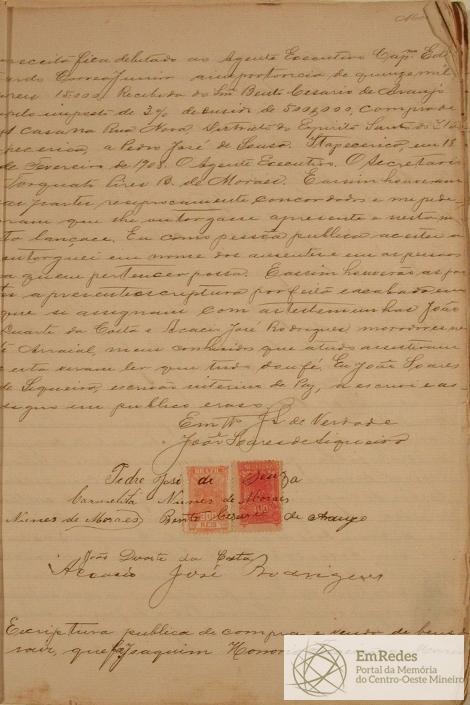 receita fica debitado ao Agente Executivo Capᵐ Edu
ardo Correa Junior a importancia de quinze mil
reis 15000. Recebido do Snr Bento Cesario de Araujo
pelo imposto de 3% de ciza de 500$000, compra de
1 Casa na Rua Nova, Districto do Espirito Santo de Ita
pecerica, a Pedro José de Sousa. Itapecerica, em 18
de Fevereiro de 1908. O Agente Executivo. O Secretario
Torquato Lires B. de Moraes. E assim houveram
as partes reciprocamente concordados e me pedi
ram que lhe outorgasse a presente e nesta no
ta lançace. Eu como pessôa publica aceitei e
outorguei em nome dos auzentes e em as pessoas
a quem pertencer possa. E assim houverão as par
tes a presente escriptura por feita e acabada em
que se assignam com as testemunhas João
Duarte da Costa e Acacio José Rodrigues moradores nes
te Arraial, meus conhecidos que a tudo assestiram
e esta viram ler que tudo dou fé. Eu João Soares
de Siqueira, escrivão interino de Paz, a escrevi e as
signo em publico e raso.
Em Tº de Verdade
João Soares de Siqueira
Pedro José de Souza
Carmelita Nunes de Moraes
Nunes de Moraes Bento Cesario de Araujo
João Duarte da Costa
Accacio José Rodrigues
BRAZIL
REIS
Escriptura publica de compra e venda de bens de
raiz, que faz Joaquim Honorio
EmRedes
Portal da Memória
do Centro-Oeste Mineiro